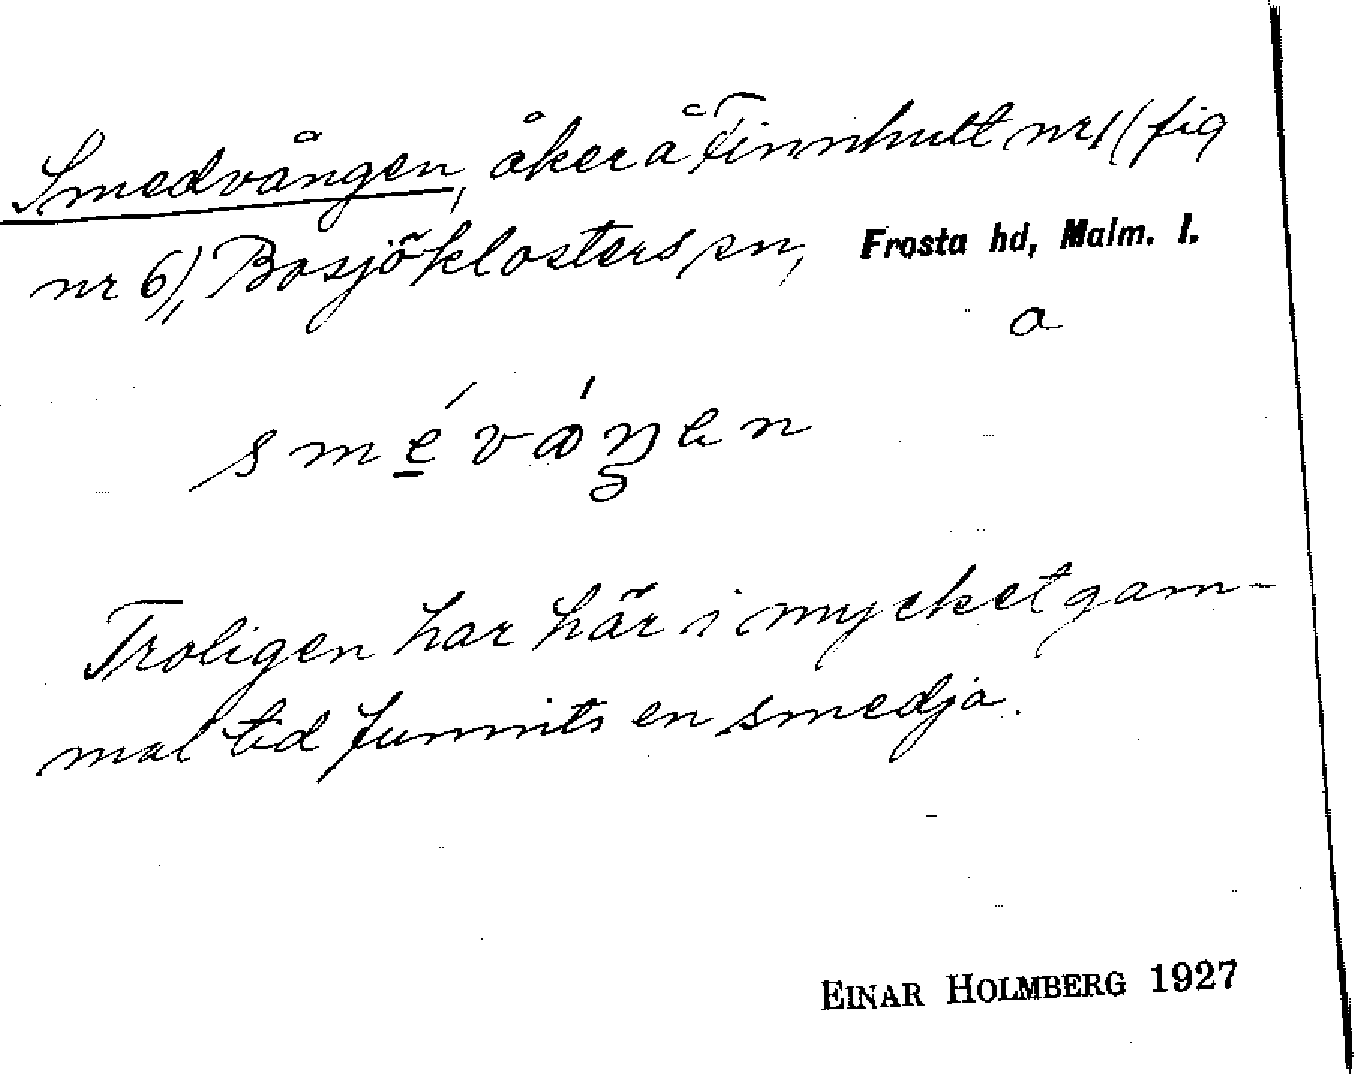 Smedvången, åker å Finnhult nr 1 (fig
nr 6), Bosjöklosters sn, Frosta hd, Malm. l.
a
Troligen har här i mycket gam-
mal tid funnits en smedja.
EINAR HOLMBERG 1927